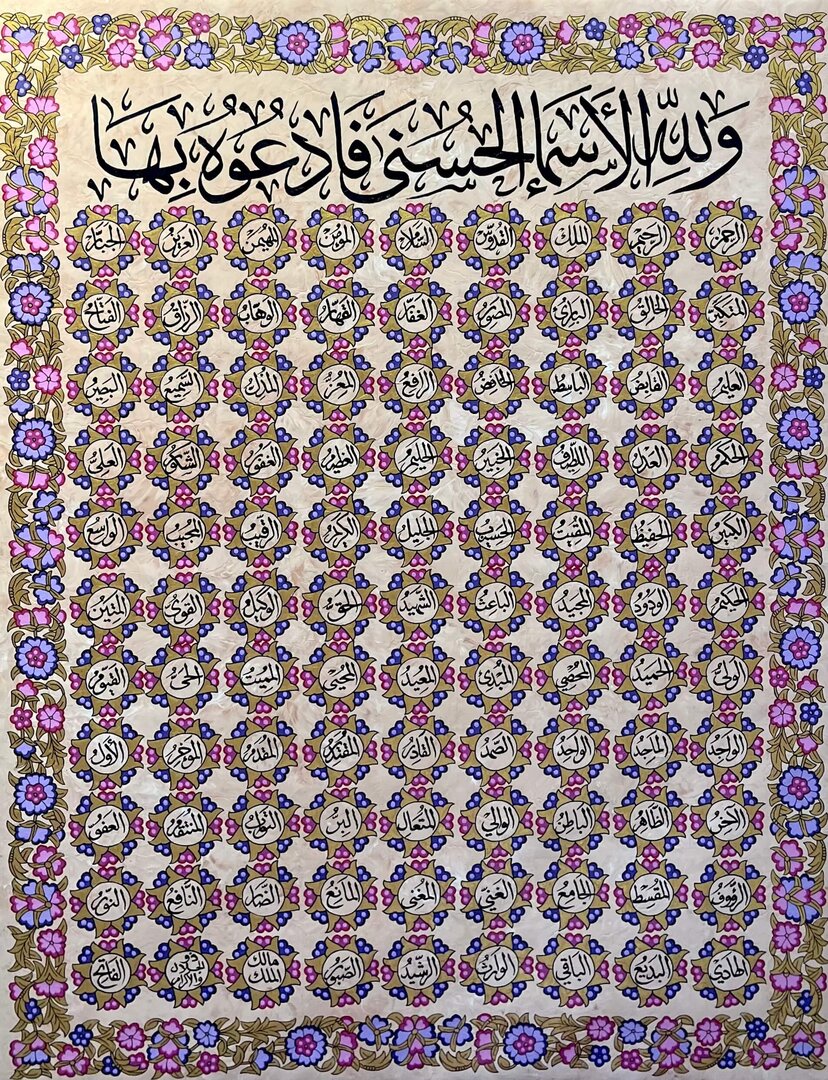 وَلِلّٰهِ الأَسْمَاءُ الحُسْنَى فَادْعُوهُ بِهَا
الرحمن الرحيم الملك القدوس السلام المؤمن المهيمن العزيز الجبار
المتكبر الخالق البارئ المصور الغفار القهار الوهاب الرزاق الفتاح
العليم القابض الباسط الخافض الرافع المعز المذل السميع البصير
الحكم العدل اللطيف الخبير الحليم العظيم الغفور الشكور العلي
الكبير الحفيظ المقيت الحسيب الجليل الكريم الرقيب المجيب الواسع
الحكيم الودود المجيد الباعث الشهيد الحق الوكيل القوى المتين
الولي الحميد المحصي المبدئ المعيد المحيي المميت الحي القيوم
الواجد الماجد الواحد الصمد القادر المقتدر المقدم المؤخر الأول
الآخر الظاهر الباطن الوالي المتعال البر التواب المنتقم العفو
الرؤوف المقسط الجامع الغني المغني المانع الضار النافع النور
الهادي البديع الباقي الوارث الرشيد الصبور مالك الملك ذو الجلال والإكرام الفاتح